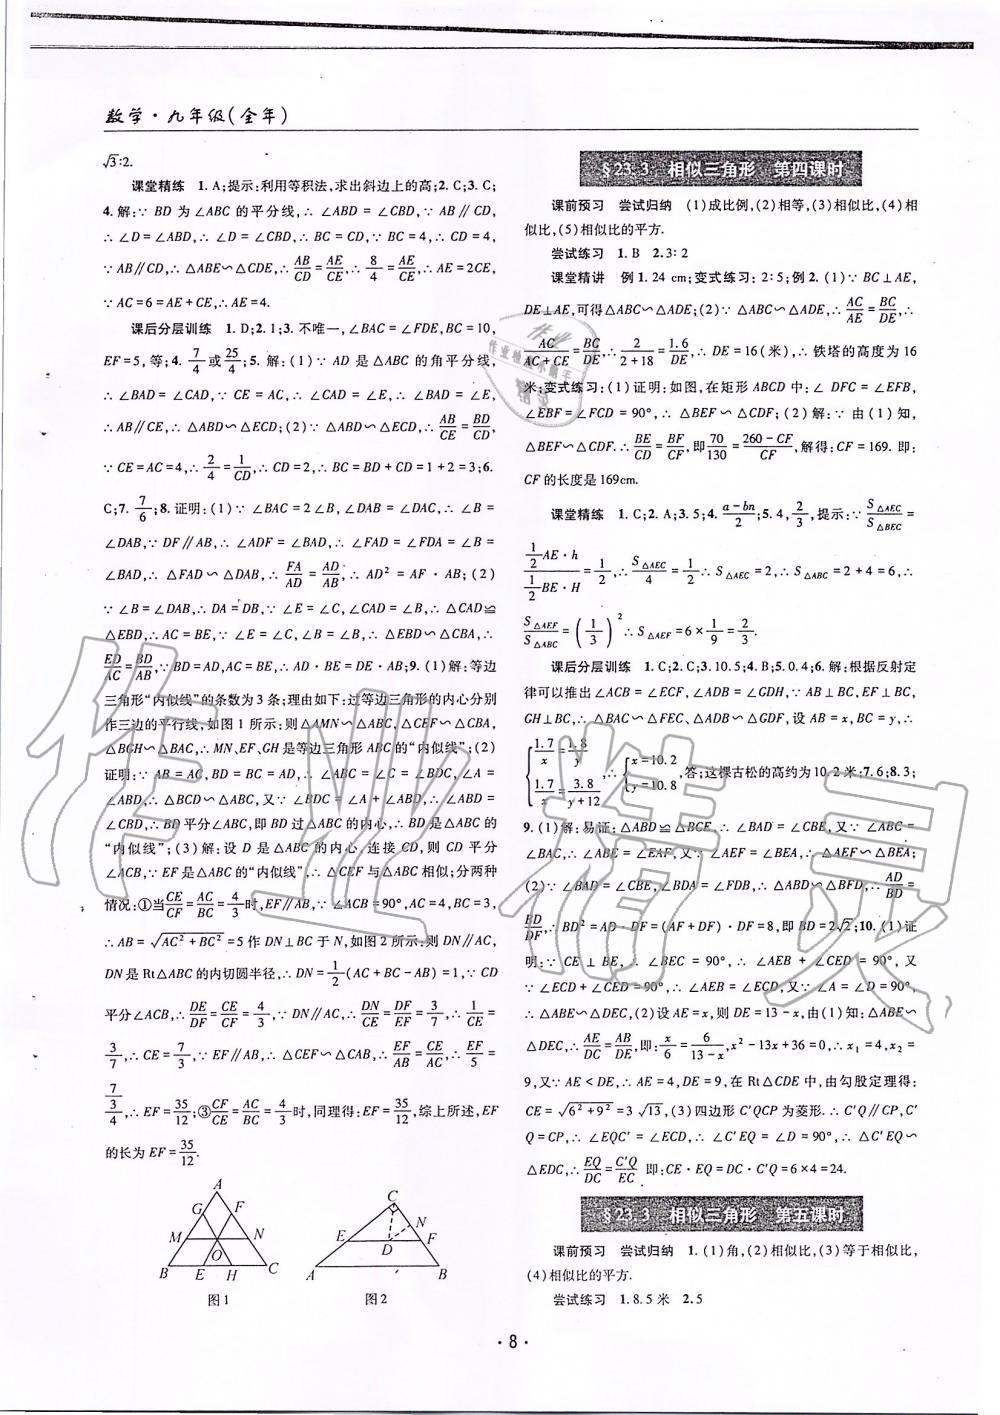 数学·九年级(全年)
√3∶2.
课堂精练 1. A;提示:利用等积法,求出斜边上的高;2. C;3. C;
4. 解:∵ BD 为∠ABC 的平分线,∴ ∠ABD = ∠CBD,∵ AB∥CD,
∴ ∠D=∠ABD,∴ ∠D = ∠CBD,∴ BC = CD,∵ BC = 4,∴ CD = 4,
∵ AB∥CD,∴ △ABE∽△CDE,∴ AB/CD = AE/CE,∴ 8/4 = AE/CE,∴ AE = 2CE,
∵ AC = 6 = AE + CE,∴ AE = 4.
课后分层训练 1. D;2. 1;3. 不唯一,∠BAC = ∠FDE,BC = 10,
EF=5,等;4. 7/4 或 25/4;5. 解:(1)∵ AD 是△ABC 的角平分线,
∴ ∠BAD = ∠CAD,∵ CE = AC,∴ ∠CAD = ∠E,∴ ∠BAD = ∠E,
∴ AB∥CE,∴ △ABD∽△ECD;(2)∵ △ABD∽△ECD,∴ AB/CE = BD/CD,
∵ CE = AC = 4,∴ 2/4 = 1/CD,∴ CD = 2,∴ BC = BD + CD = 1 + 2 = 3;6.
C;7. 7/6;8. 证明:(1)∵ ∠BAC = 2∠B,∠DAB = ∠DAC,∴ ∠B =
∠DAB,∵ DF∥AB,∴ ∠ADF = ∠BAD,∴ ∠FAD = ∠FDA = ∠B =
∠BAD,∴ △FAD∽△DAB,∴ FA/AD = AD/AB,∴ AD² = AF·AB;(2)
∵ ∠B = ∠DAB,∴ DA = DB,∵ ∠E = ∠C,∠CAD = ∠B,∴ △CAD≌
△EBD,∴ AC = BE,∵ ∠E = ∠C,∠B = ∠B,∴ △EBD∽△CBA,∴
ED/AC = BD/AB,∵ BD = AD,AC = BE,∴ AD·BE = DE·AB;9. (1)解:等边
三角形“内似线”的条数为 3 条;理由如下:过等边三角形的内心分别
作三边的平行线,如图 1 所示:则△AMN∽△ABC,△CEF∽△CBA,
△BGH∽△BAC,∴ MN、EF、GH 是等边三角形 ABC 的“内似线”;(2)
证明:∵ AB = AC,BD = BC = AD,∴ ∠ABC = ∠C = ∠BDC,∠A =
∠ABD,∴ △BCD∽△ABC,又∵ ∠BDC = ∠A + ∠ABD,∴ ∠ABD =
∠CBD,∴ BD 平分∠ABC,即 BD 过△ABC 的内心,∴ BD 是△ABC 的
“内似线”;(3)解:设 D 是△ABC 的内心,连接 CD,则 CD 平分
∠ACB,∵ EF 是△ABC 的“内似线”,∴ △CEF 与△ABC 相似;分两种
情况:①当 CE/CF = AC/BC = 4/3 时,EF∥AB,∵ ∠ACB = 90°,AC = 4,BC = 3,
∴ AB = √(AC² + BC²) = 5 作 DN⊥BC 于 N,如图 2 所示:则 DN∥AC,
DN 是 Rt△ABC 的内切圆半径,∴ DN = 1/2(AC + BC - AB) = 1,∵ CD
平分∠ACB,∴ DE/DF = CE/CF = 4/3,∵ DN∥AC,∴ DN/CE = DF/EF = 3/7,∴ 1/CE =
3/7,∴ CE = 7/3,∵ EF∥AB,∴ △CEF∽△CAB,∴ EF/AB = CE/AC,∴ EF/5 =
(7/3)/4,∴ EF = 35/12;③ CF/CE = AC/BC = 4/3 时,同理得:EF = 35/12,综上所述,EF
的长为 EF = 35/12.
A G F M N O B E H C
图 1
C E N D F A B
图 2
§23.3 相似三角形 第四课时
课前预习 尝试归纳 (1)成比例,(2)相等,(3)相似比,(4)相
似比,(5)相似比的平方.
尝试练习 1. B 2. 3∶2
课堂精讲 例 1. 24 cm;变式练习:2∶5;例 2. (1)∵ BC⊥AE,
DE⊥AE,可得△ABC∽△ADE;(2)∵ △ABC∽△ADE,∴ AC/AE = BC/DE,∴
AC/(AC + CE) = BC/DE,∴ 2/(2 + 18) = 1.6/DE,∴ DE = 16(米),∴ 铁塔的高度为 16
米;变式练习:(1)证明:如图,在矩形 ABCD 中:∠DFC = ∠EFB,
∠EBF = ∠FCD = 90°,∴ △BEF∽△CDF;(2)解:∵ 由(1)知,
△BEF∽△CDF. ∴ BE/CD = BF/CF,即 70/130 = (260 - CF)/CF,解得:CF = 169. 即:
CF 的长度是 169cm.
课堂精练 1. C;2. A;3. 5;4. (a - bn)/2;5. 4,2/3,提示:∵ S△AEC/S△BEC =
(1/2 AE·h)/(1/2 BE·H) = 1/2,∴ S△AEC/4 = 1/2 ∴ S△AEC = 2,∴ S△ABC = 2 + 4 = 6,∴
S△AEF/S△ABC = (1/3)² ∴ S△AEF = 6 × 1/9 = 2/3.
课后分层训练 1. C;2. C;3. 10.5;4. B;5. 0.4;6. 解:根据反射定
律可以推出∠ACB = ∠ECF,∠ADB = ∠GDH,∵ AB⊥BC,EF⊥BC,
GH⊥BC,∴ △BAC∽△FEC、△ADB∽△GDF,设 AB = x,BC = y,∴
{1.7/x = 1.8/y, 1.7/x = 3.8/(y + 12)}, ∴ {x = 10.2, y = 10.8},答:这棵古松的高约为 10.2 米;7. 6;8. 3;
9. (1)解:易证:△ABD≌△BCE. ∴ ∠BAD = ∠CBE,又∵ ∠ABC =
∠BAC,∴ ∠ABE = ∠EAF,又∵ ∠AEF = ∠BEA,∴ △AEF∽△BEA;
(2)∵ ∠BAD = ∠CBE,∠BDA = ∠FDB,∴ △ABD∽△BFD,∴ AD/BD =
BD/DF,∴ BD² = AD·DF = (AF + DF)·DF = 8,即 BD = 2√2;10. (1)证
明:∵ CE⊥BE,∴ ∠BEC = 90°,∴ ∠AEB + ∠CED = 90°,又
∵ ∠ECD + ∠CED = 90°,∴ ∠AEB = ∠ECD,又∵ ∠A = ∠D = 90°,
∴ △ABE∽△DEC,(2)设 AE = x,则 DE = 13 - x,由(1)知:△ABE∽
△DEC,∴ AE/DC = AB/DE,即:x/6 = 6/(13 - x),x² - 13x + 36 = 0,∴ x₁ = 4,x₂ =
9,又∵ AE < DE,∴ AE = 4,DE = 9,在 Rt△CDE 中,由勾股定理得:
CE = √(6² + 9²) = 3√13,(3)四边形 C'QCP 为菱形. ∴ C'Q∥CP,C'
Q = CP,∴ ∠EQC' = ∠ECD,∴ ∠C'EQ = ∠D = 90°,∴ △C'EQ∽
△EDC,∴ EQ/DC = C'Q/EC 即:CE·EQ = DC·C'Q = 6 × 4 = 24.
§23.3 相似三角形 第五课时
课前预习 尝试归纳 1. (1)角,(2)相似比,(3)等于相似比,
(4)相似比的平方.
尝试练习 1. 8.5 米 2. 5
· 8 ·
作业精灵